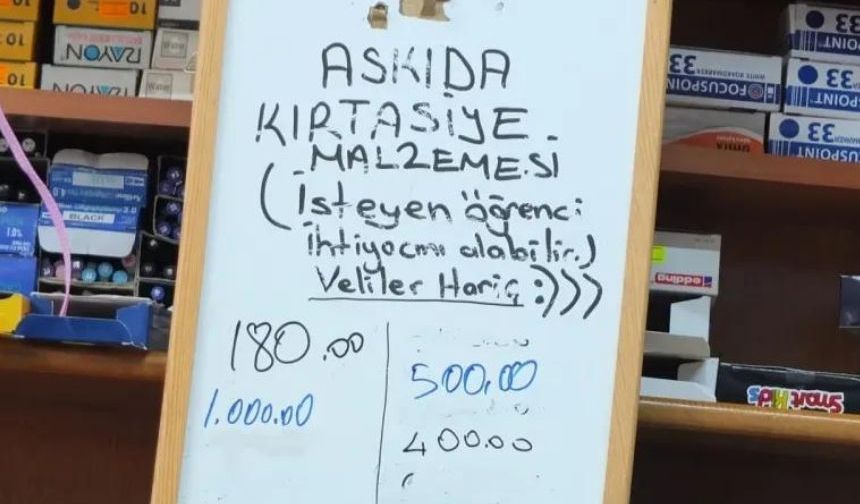 ASKIDA
KIRTASİYE
MALZEMESİ
(İsteyen öğrenci
ihtiyacını alabilir.)
Veliler Hariç :)))
180.00
1.000.00
500,00
400.00
10
10
10
RAYON
RAYON
BLACK
33
FOCUSPOINT
WHITE BOARDMARKER
33
33
edding
Smart Kids